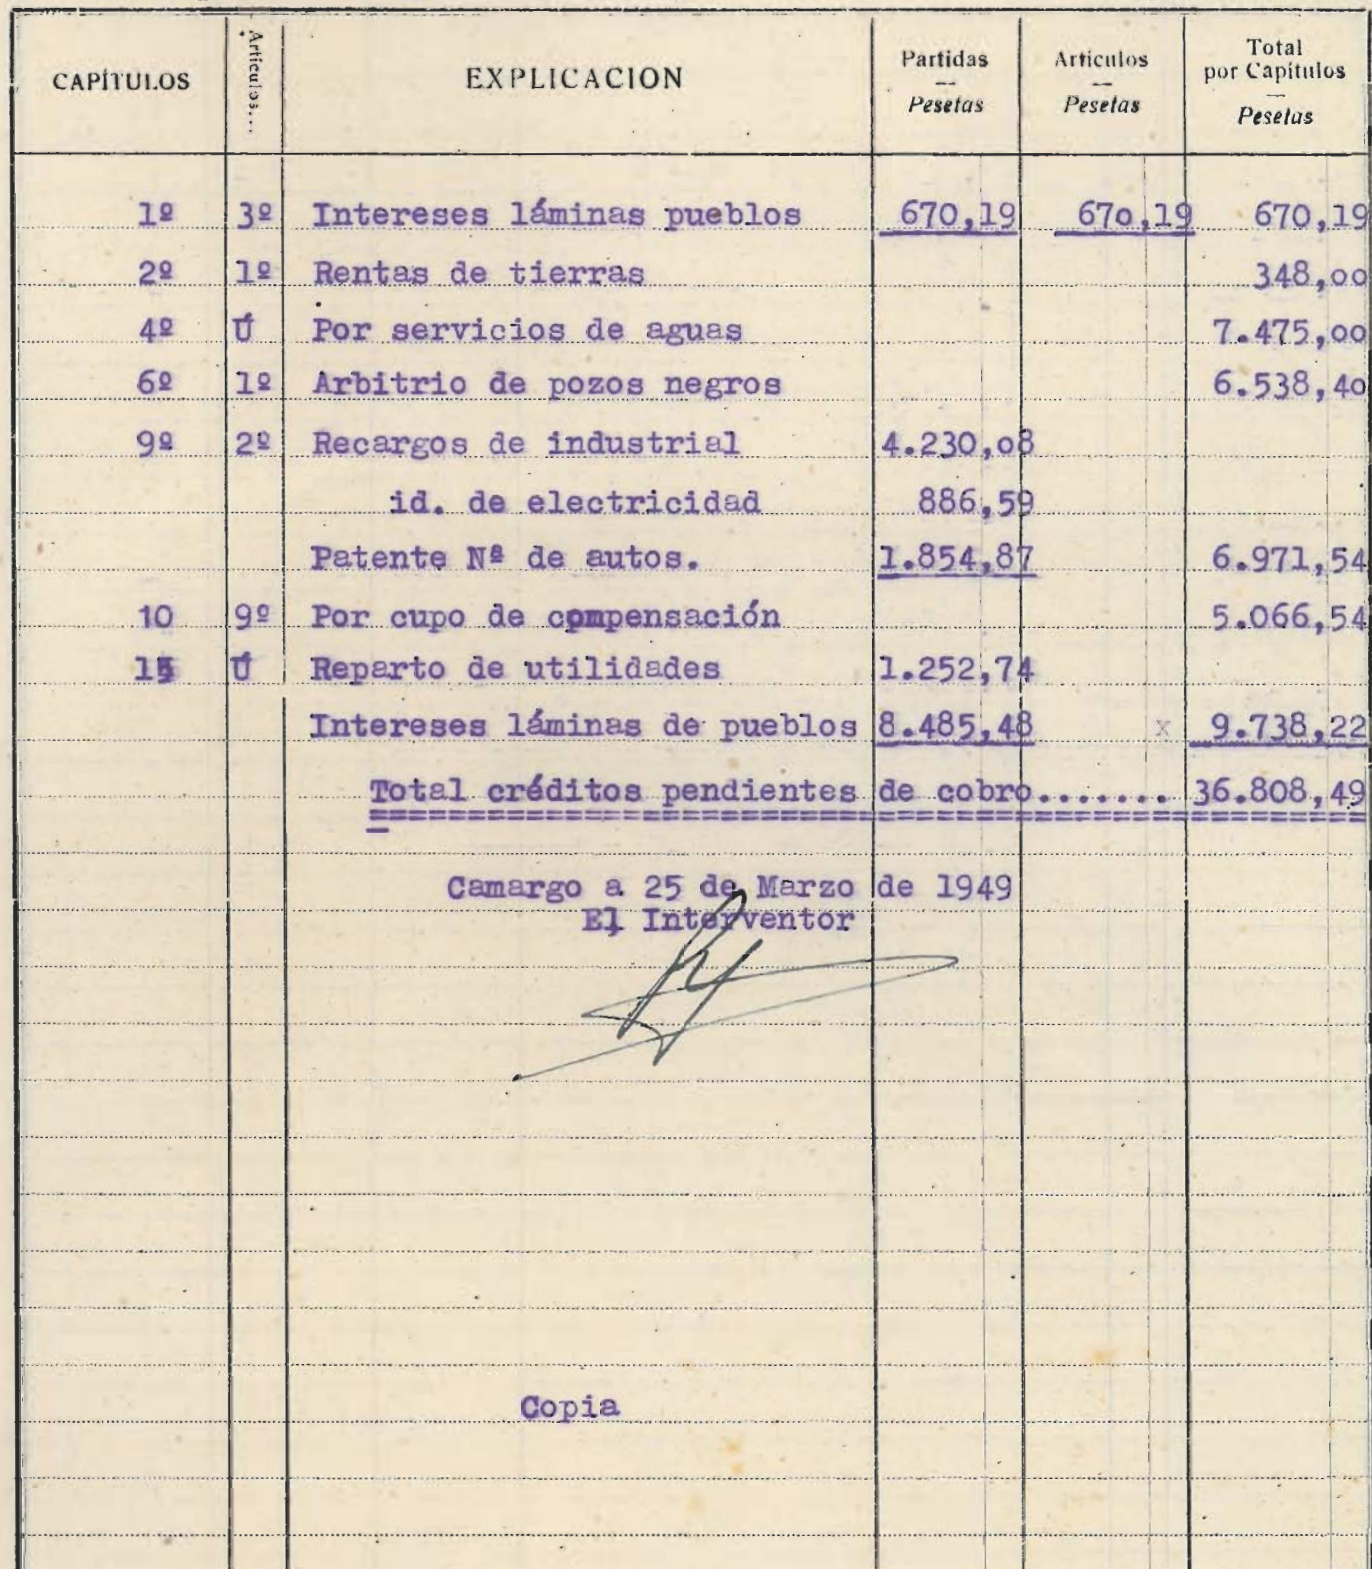 CAPÍTULOS Artículos... EXPLICACION Partidas — Pesetas Articulos — Pesetas Total por Capítulos — Pesetas
1º 3º Intereses láminas pueblos 670,19 670,19 670,19
2º 1º Rentas de tierras 348,00
4º Ú Por servicios de aguas 7.475,00
6º 1º Arbitrio de pozos negros 6.538,40
9º 2º Recargos de industrial 4.230,08
id. de electricidad 886,59
Patente Nª de autos. 1.854,87 6.971,54
10 9º Por cupo de compensación 5.066,54
Ú Reparto de utilidades 1.252,74
Intereses láminas de pueblos 8.485,48 x 9.738,22
Total créditos pendientes de cobro....... 36.808,49
Camargo a 25 de Marzo de 1949
El Interventor
Copia